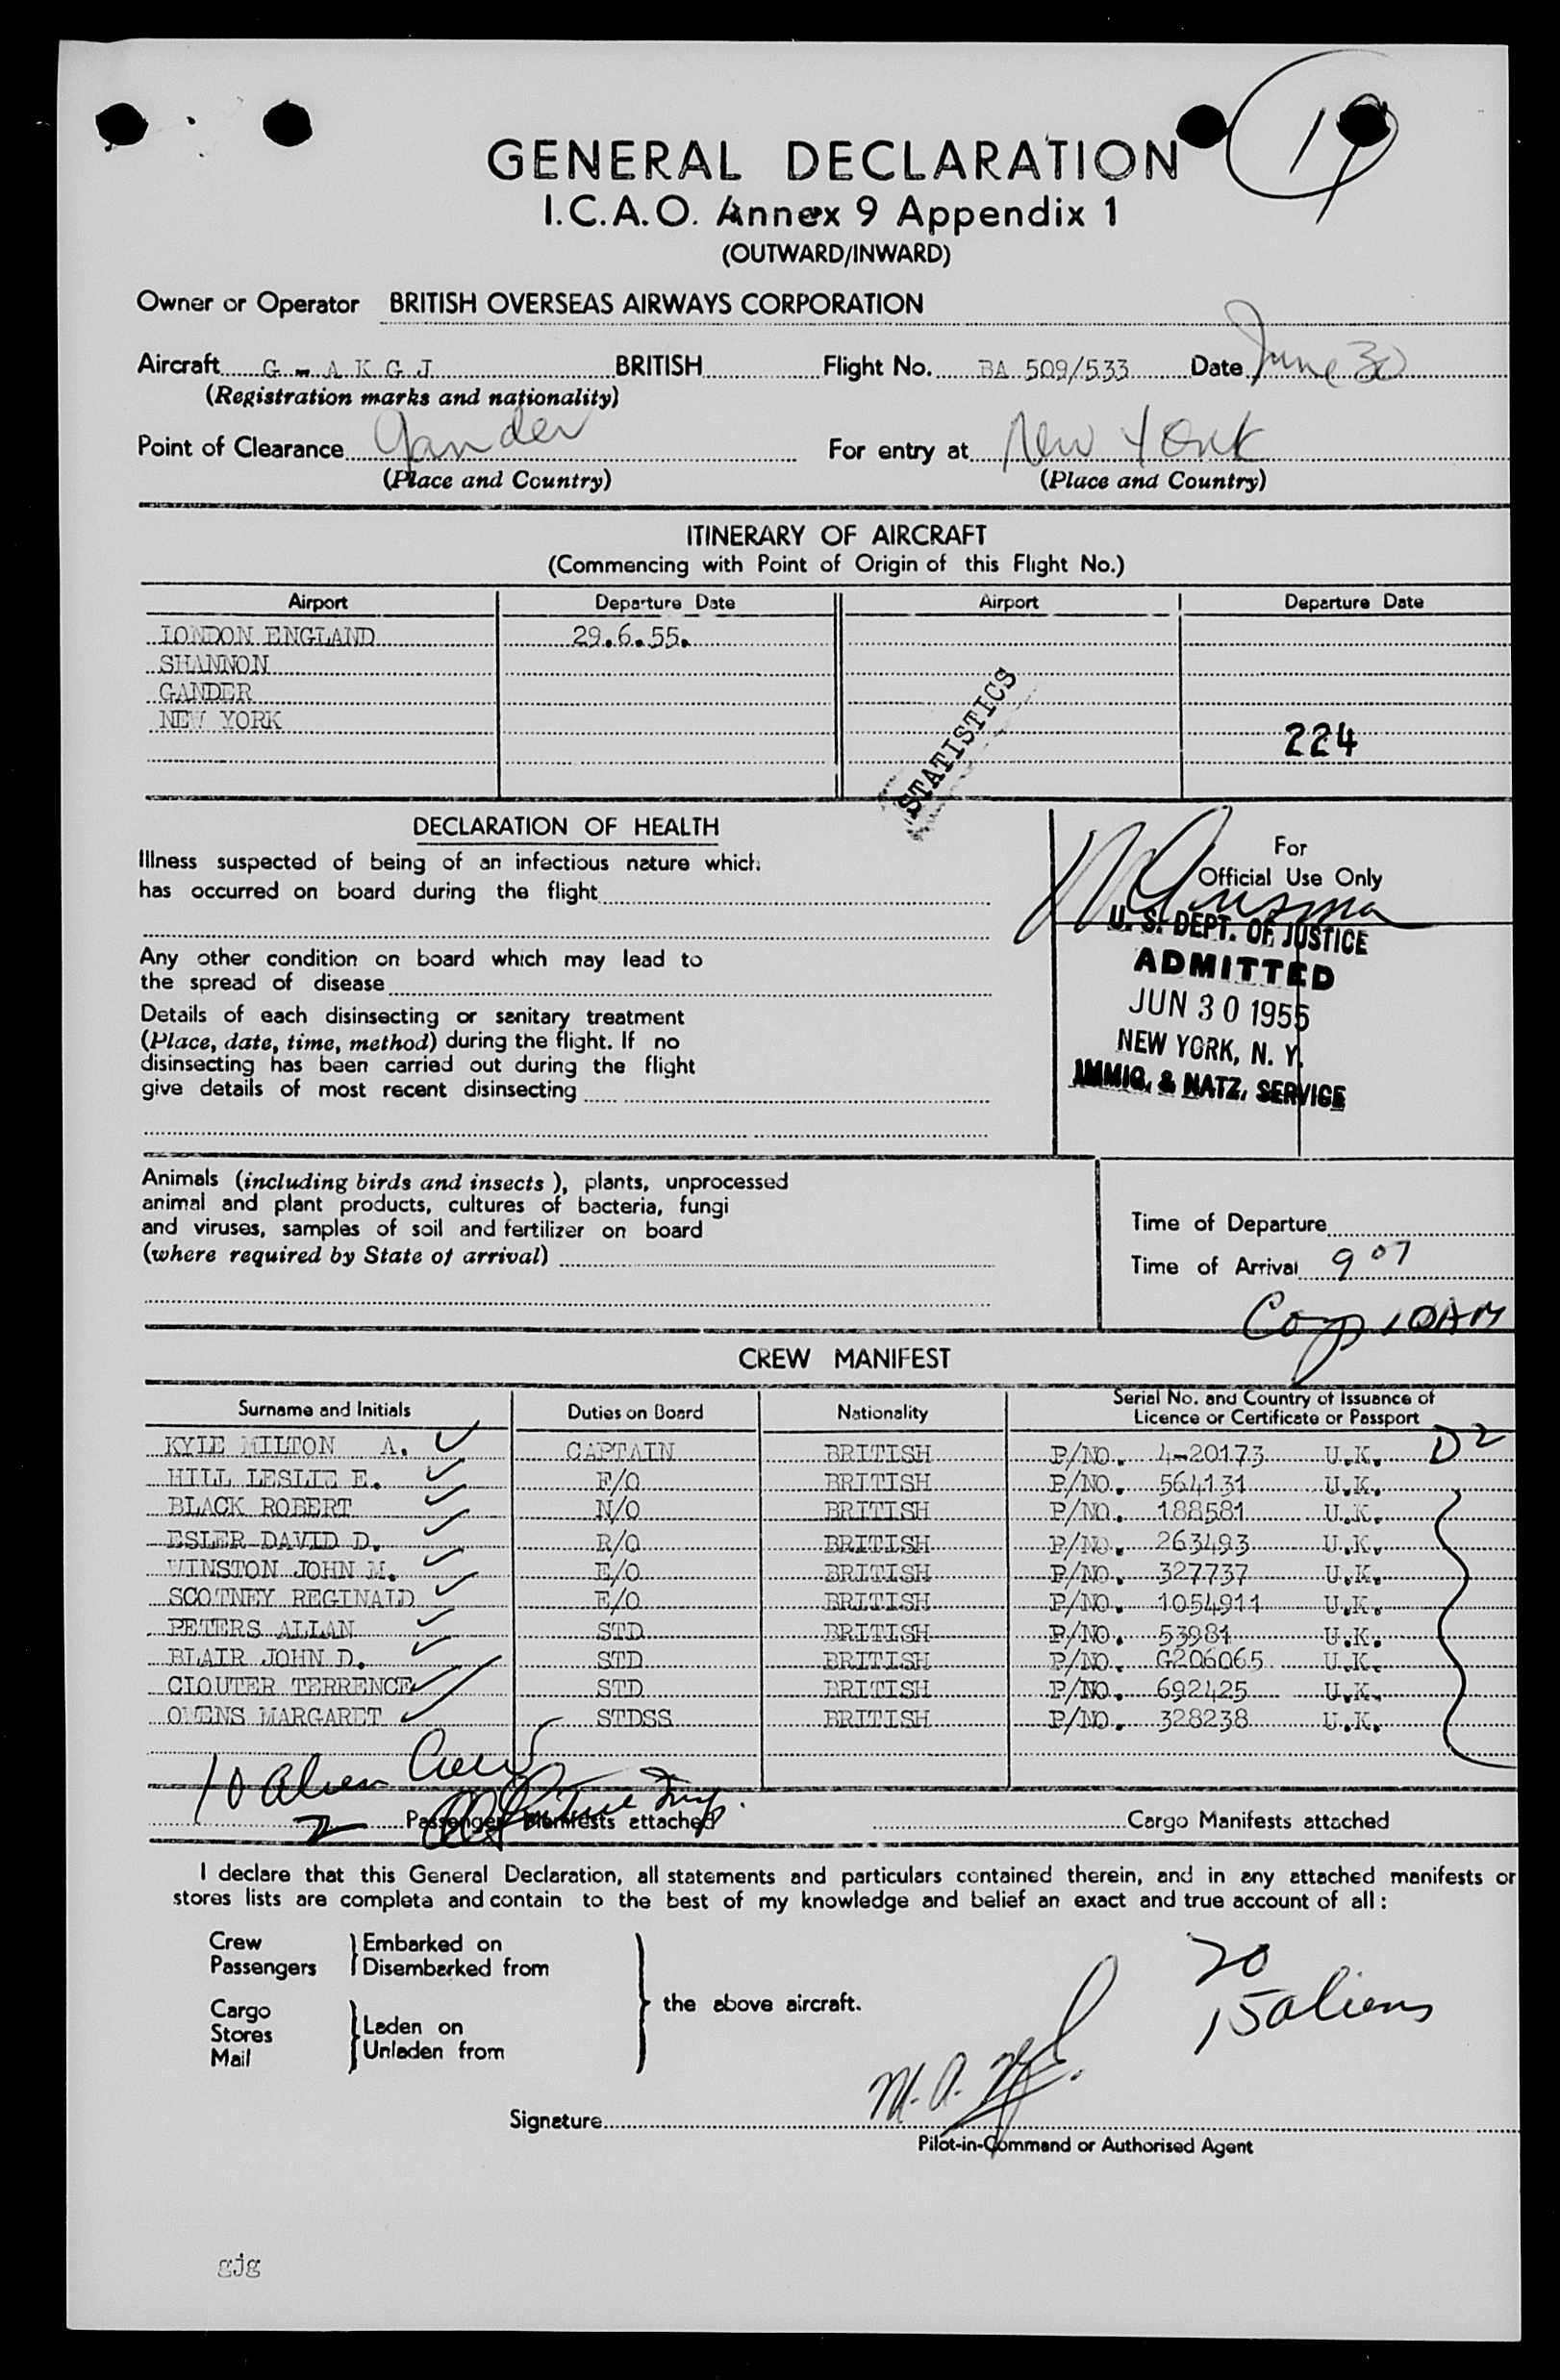 19
GENERAL DECLARATION
I.C.A.O. Annex 9 Appendix 1
(OUTWARD/INWARD)
Owner or Operator BRITISH OVERSEAS AIRWAYS CORPORATION
Aircraft G - A K G J BRITISH Flight No. BA 509/533 Date June 30
(Registration marks and nationality)
Point of Clearance Gander For entry at New York
(Place and Country) (Place and Country)
ITINERARY OF AIRCRAFT
(Commencing with Point of Origin of this Flight No.)
Airport Departure Date Airport Departure Date
LONDON ENGLAND 29.6.55.
SHANNON
GANDER
NEW YORK
224
STATISTICS
DECLARATION OF HEALTH
Illness suspected of being of an infectious nature which
has occurred on board during the flight
Any other condition on board which may lead to
the spread of disease
Details of each disinsecting or sanitary treatment
(Place, date, time, method) during the flight. If no
disinsecting has been carried out during the flight
give details of most recent disinsecting
For
Official Use Only
U. S. DEPT. OF JUSTICE
ADMITTED
JUN 30 1955
NEW YORK, N. Y.
IMMIG. & NATZ. SERVICE
Animals (including birds and insects), plants, unprocessed
animal and plant products, cultures of bacteria, fungi
and viruses, samples of soil and fertilizer on board
(where required by State of arrival)
Time of Departure
Time of Arrival 907
10AM
CREW MANIFEST
Surname and Initials Duties on Board Nationality Serial No. and Country of Issuance of
Licence or Certificate or Passport
KYLE MILTON A. CAPTAIN BRITISH P/NO. 4-20173 U.K. D2
HILL LESLIE E. F/O BRITISH P/NO. 564131 U.K.
BLACK ROBERT N/O BRITISH P/NO. 188581 U.K.
ESLER DAVID D. R/O BRITISH P/NO. 263493 U.K.
WINSTON JOHN M. E/O BRITISH P/NO. 327737 U.K.
SCOTNEY REGINALD E/O BRITISH P/NO. 1054911 U.K.
PETERS ALLAN STD BRITISH P/NO. 53981 U.K.
BLAIR JOHN D. STD BRITISH P/NO. G206065 U.K.
CLOUTER TERRENCE STD BRITISH P/NO. 692425 U.K.
OWENS MARGARET STDSS BRITISH P/NO. 328238 U.K.
10 alien Crew
2 Passenger Manifests attached Cargo Manifests attached
I declare that this General Declaration, all statements and particulars contained therein, and in any attached manifests or
stores lists are complete and contain to the best of my knowledge and belief an exact and true account of all:
Crew Embarked on
Passengers Disembarked from
the above aircraft.
Cargo
Stores Laden on
Mail Unladen from
20
15 aliens
Signature M. A.
Pilot-in-Command or Authorised Agent
gjg